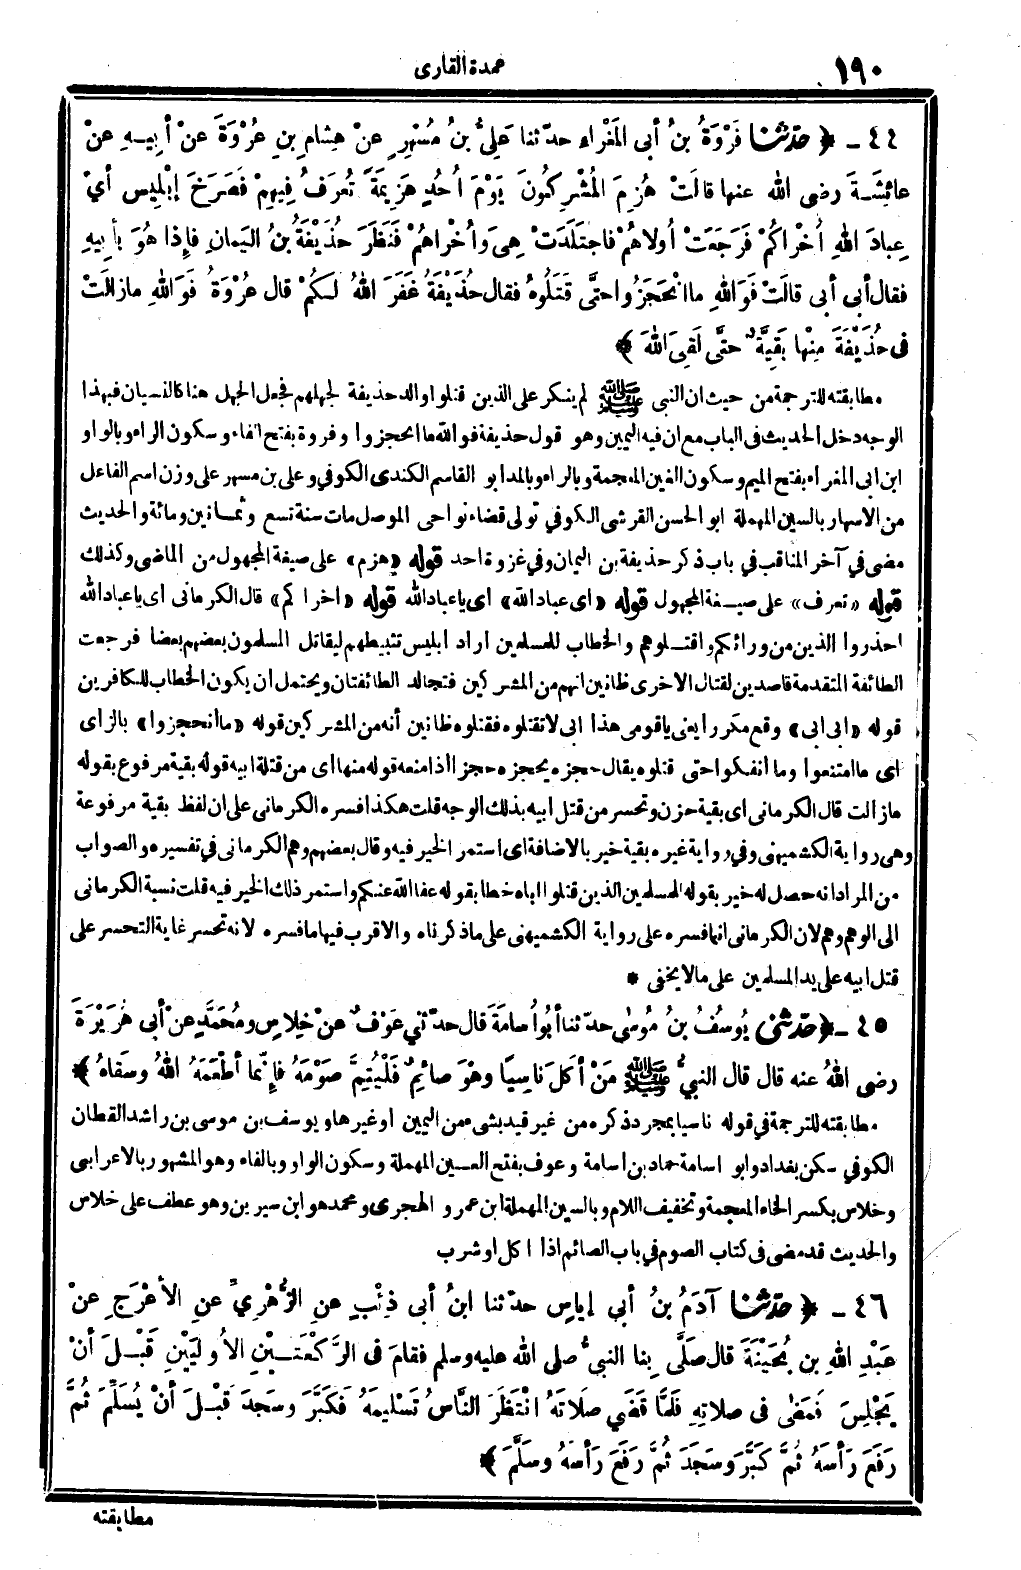 ١٩٠
عمدة القارى
٤٤ - ﴿ حدثنا فَرْوَةُ بنُ أبى المَغْرَاءِ حدّثنا عَلِىُّ بنُ مُسْهِرٍ عنْ هِشامِ بنِ عُرْوَةَ عنْ أبيهِ عنْ
عائِشَةَ رضى الله عنها قالَتْ هُزِمَ المُشْرِكُونَ يَوْمَ أُحُدٍ هَزِيمَةً تُعرَفُ فِيهِمْ فَصَرَخَ إبْلِيسُ أىْ
عِبادَ اللهِ أُخْرَاكُمْ فَرَجَعَتْ أُولاهُمْ فاجتَلَدَتْ هِىَ وأُخْراهُمْ فَنَظَرَ حُذَيْفَةُ بنُ اليَمانِ فإِذا هُوَ بأبِيهِ
فقال أبى أبى قالَتْ فَوَاللهِ ما انْحَجَزُوا حتَّى قَتَلُوهُ فقال حُذَيْفَةُ غَفَرَ اللهُ لَكُمْ قال عُرْوَةُ فَوَاللهِ مازالَتْ
فى حُذَيْفَةَ مِنْها بَقِيَّةٌ حتَّى لَقِىَ اللهَ ﴾
مطابقته للترجمة من حيث ان النبى ﷺ لم ينكر على الذين قتلوا والد حذيفة لجهلهم فجعل الجهل هنا كالنسيان فبهذا
الوجه دخل الحديث فى الباب مع ان فيه اليمين وهو قول حذيفة فوالله ما انحجزوا وفروة بفتح الفاء وسكون الراء وبالواو
ابن ابى المغراء بفتح الميم وسكون الغين المعجمة وبالراء وبالمد ابو القاسم الكندى الكوفي وعلى بن مسهر على وزن اسم الفاعل
من الاسهار بالسين المهملة ابو الحسن القرشى الكوفي تولى قضاء نواحى الموصل مات سنة تسع وثمانين ومائة والحديث
مضى في آخر المناقب في باب ذكر حذيفة بن اليمان وفي غزوة احد قوله «هزم» على صيغة المجهول من الماضى وكذلك
قوله «تعرف» على صيغة المجهول قوله «اى عباد الله» اى يا عباد الله قوله «اخراكم» قال الكرمانى اى يا عباد الله
احذروا الذين من ورائكم واقتلوهم والخطاب للمسلمين اراد ابليس تثبيطهم ليقاتل المسلمون بعضهم بعضا فرجعت
الطائفة المتقدمة قاصدين لقتال الاخرى ظانين انهم من المشركين فتجالد الطائفتان ويحتمل ان يكون الخطاب للكافرين
قوله «ابى ابى» وقع مكررا يعنى يا قومى هذا ابى لا تقتلوه فقتلوه ظانين أنه من المشركين قوله «ما انحجزوا» بالزاى
اى ما امتنعوا وما انفكوا حتى قتلوه يقال حجزه يحجزه حجزا اذا منعه قوله منها اى من قتلة ابيه قوله بقية مرفوع بقوله
مازالت قال الكرمانى اى بقية حزن وتحسر من قتل ابيه بذلك الوجه قلت هكذا فسره الكرمانى على ان لفظ بقية مرفوعة
وهى رواية الكشميهنى وفي رواية غيره بقية خير بالاضافة اى استمر الخير فيه وقال بعضهم وهم الكرمانى في تفسيره والصواب
من المراد انه حصل له خير بقوله للمسلمين الذين قتلوا اباه خطا بقوله عفا الله عنكم واستمر ذلك الخير فيه قلت نسبة الكرمانى
الى الوهم وهم لان الكرمانى انما فسره على رواية الكشميهنى على ما ذكرناه والاقرب فيها ما فسره لانه تحسر غاية التحسر على
قتل ابيه على يد المسلمين على ما لا يخفى *
٤٥ - ﴿ حدثنى يُوسُفُ بنُ مُوسَى حدّثنا أبُو أُسامَةَ قال حدّثنى عَوْفٌ عنْ خِلاسٍ ومُحَمَّدٍ عنْ أبى هُرَيْرَةَ
رضى اللهُ عنه قال قال النبىُّ ﷺ مَنْ أكَلَ ناسِيًا وهْوَ صائِمٌ فَلْيُتِمَّ صَوْمَهُ فإِنَّما أطْعَمَهُ اللهُ وسَقاهُ ﴾
مطابقته للترجمة في قوله ناسيا بمجرد ذكره من غير قيد بشىء من اليمين او غيرها ويوسف بن موسى بن راشد القطان
الكوفي سكن بغداد وابو اسامة حماد بن اسامة وعوف بفتح العين المهملة وسكون الواو وبالفاء وهو المشهور بالاعرابى
وخلاس بكسر الخاء المعجمة وتخفيف اللام وبالسين المهملة ابن عمرو الهجرى ومحمد هو ابن سيرين وهو عطف على خلاس
والحديث قد مضى فى كتاب الصوم في باب الصائم اذا اكل او شرب
٤٦ - ﴿ حدثنا آدَمُ بنُ أبى إياسٍ حدّثنا ابنُ أبى ذِئْبٍ عنِ الزُّهْرِىِّ عنِ الأَعْرَجِ عنْ
عَبْدِ اللهِ بنِ بُحَيْنَةَ قال صَلَّى بِنا النبىُّ صلى الله عليه وسلم فقامَ فى الرَّكْعَتَيْنِ الأُولَيَيْنِ قَبْلَ أنْ
يَجْلِسَ فَمَضَى فى صلاتِهِ فَلَمَّا قَضَى صلاتَهُ انْتَظَرَ النَّاسُ تَسْلِيمَهُ فَكَبَّرَ وسَجَدَ قَبْلَ أنْ يُسَلِّمَ ثُمَّ
رَفَعَ رَأسَهُ ثُمَّ كَبَّرَ وسَجَدَ ثُمَّ رَفَعَ رَأسَهُ وسَلَّمَ ﴾
مطابقته